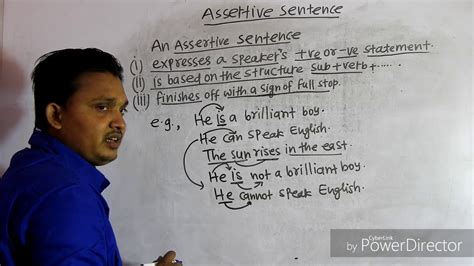 Assertive Sentence
An Assertive sentence
(i) expresses a speaker's +ve or -ve statement.
(ii) is based on the structure sub+verb+......
(iii) finishes off with a sign of full stop.
e.g., He is a brilliant boy.
He can speak English.
The sun rises in the east.
He is not a brilliant boy.
He cannot speak English.
CyberLink
by PowerDirector